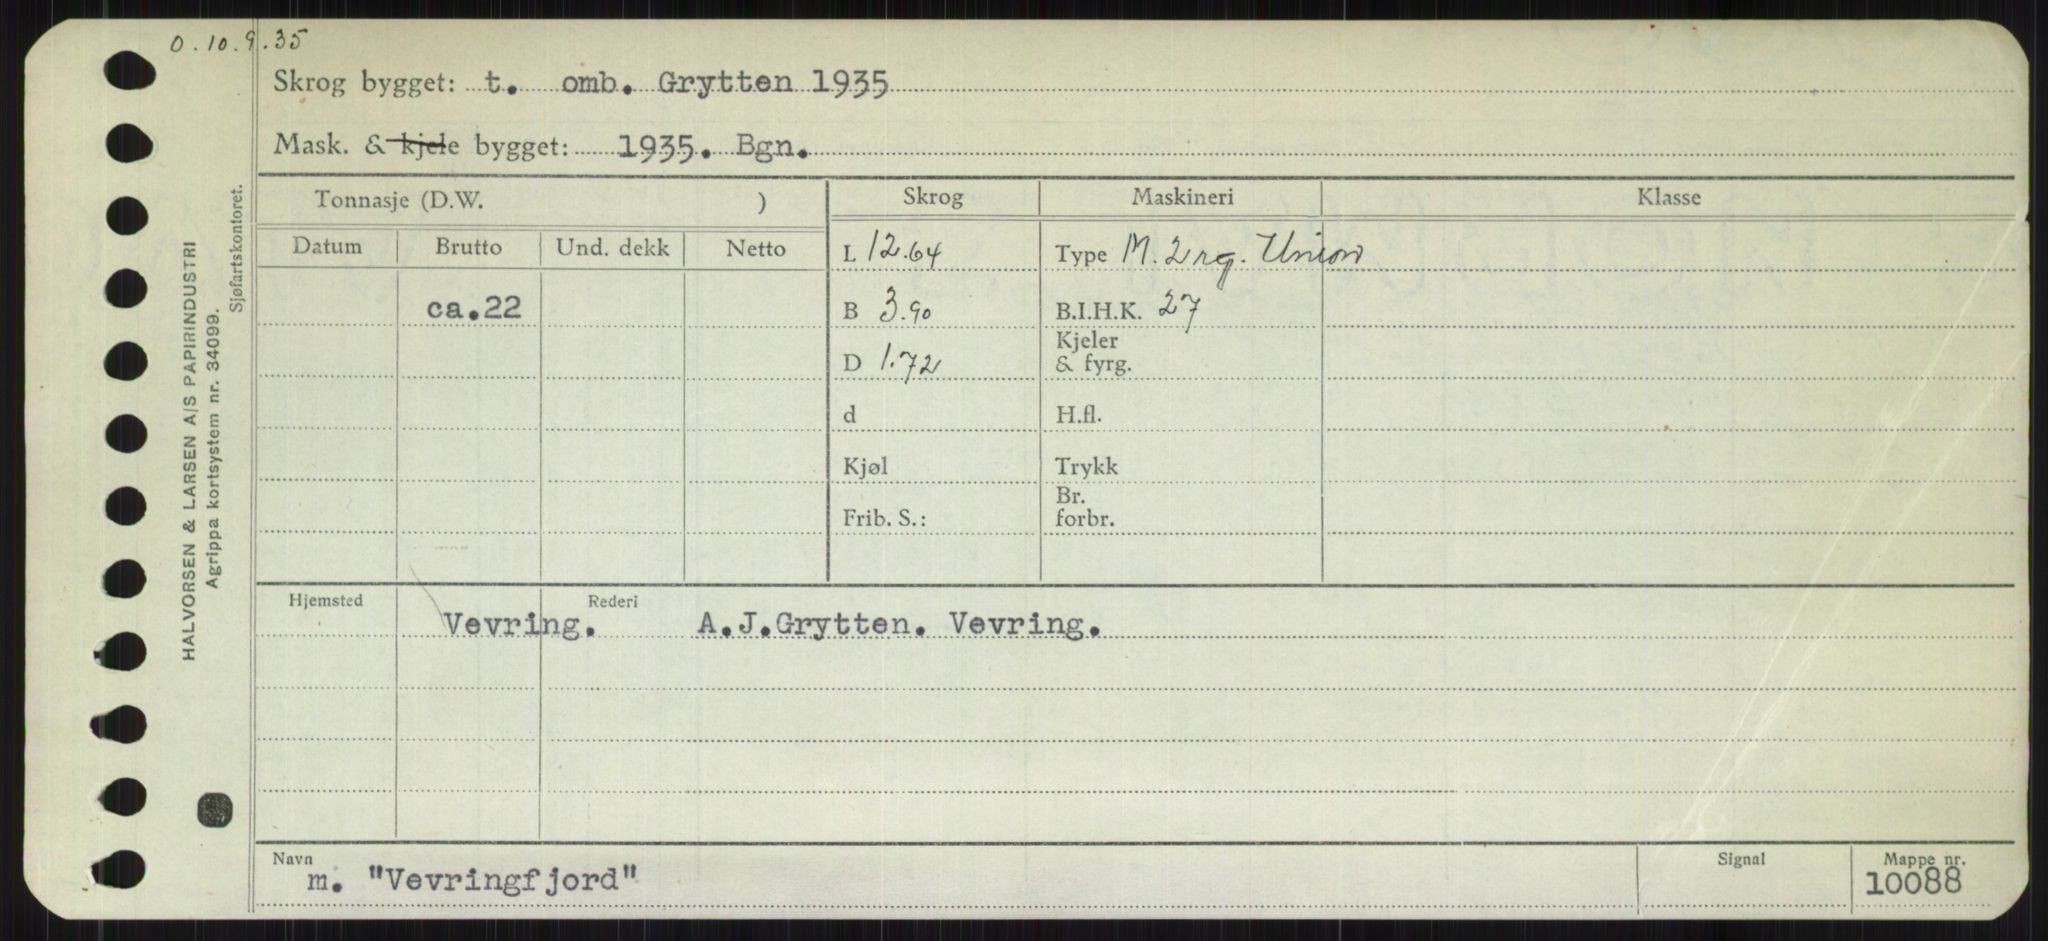 O.10.9.35
Skrog bygget: t. omb. Grytten 1935
Mask. & kjele bygget: 1935. Bgn.
HALVORSEN & LARSEN A/S PAPIRINDUSTRI
Agrippa kortsystem nr. 34099.
Sjøfartskontoret.
Tonnasje (D.W. ) Skrog Maskineri Klasse
Datum Brutto Und. dekk Netto L 12.64 Type M. 2 rg. Union
ca.22 B 3.90 B.I.H.K. 27
D 1.72 Kjeler & fyrg.
d H.fl.
Kjøl Trykk
Frib. S.: Br. forbr.
Hjemsted Rederi
Vevring. A.J.Grytten. Vevring.
Navn Signal Mappe nr.
m. "Vevringfjord" 10088